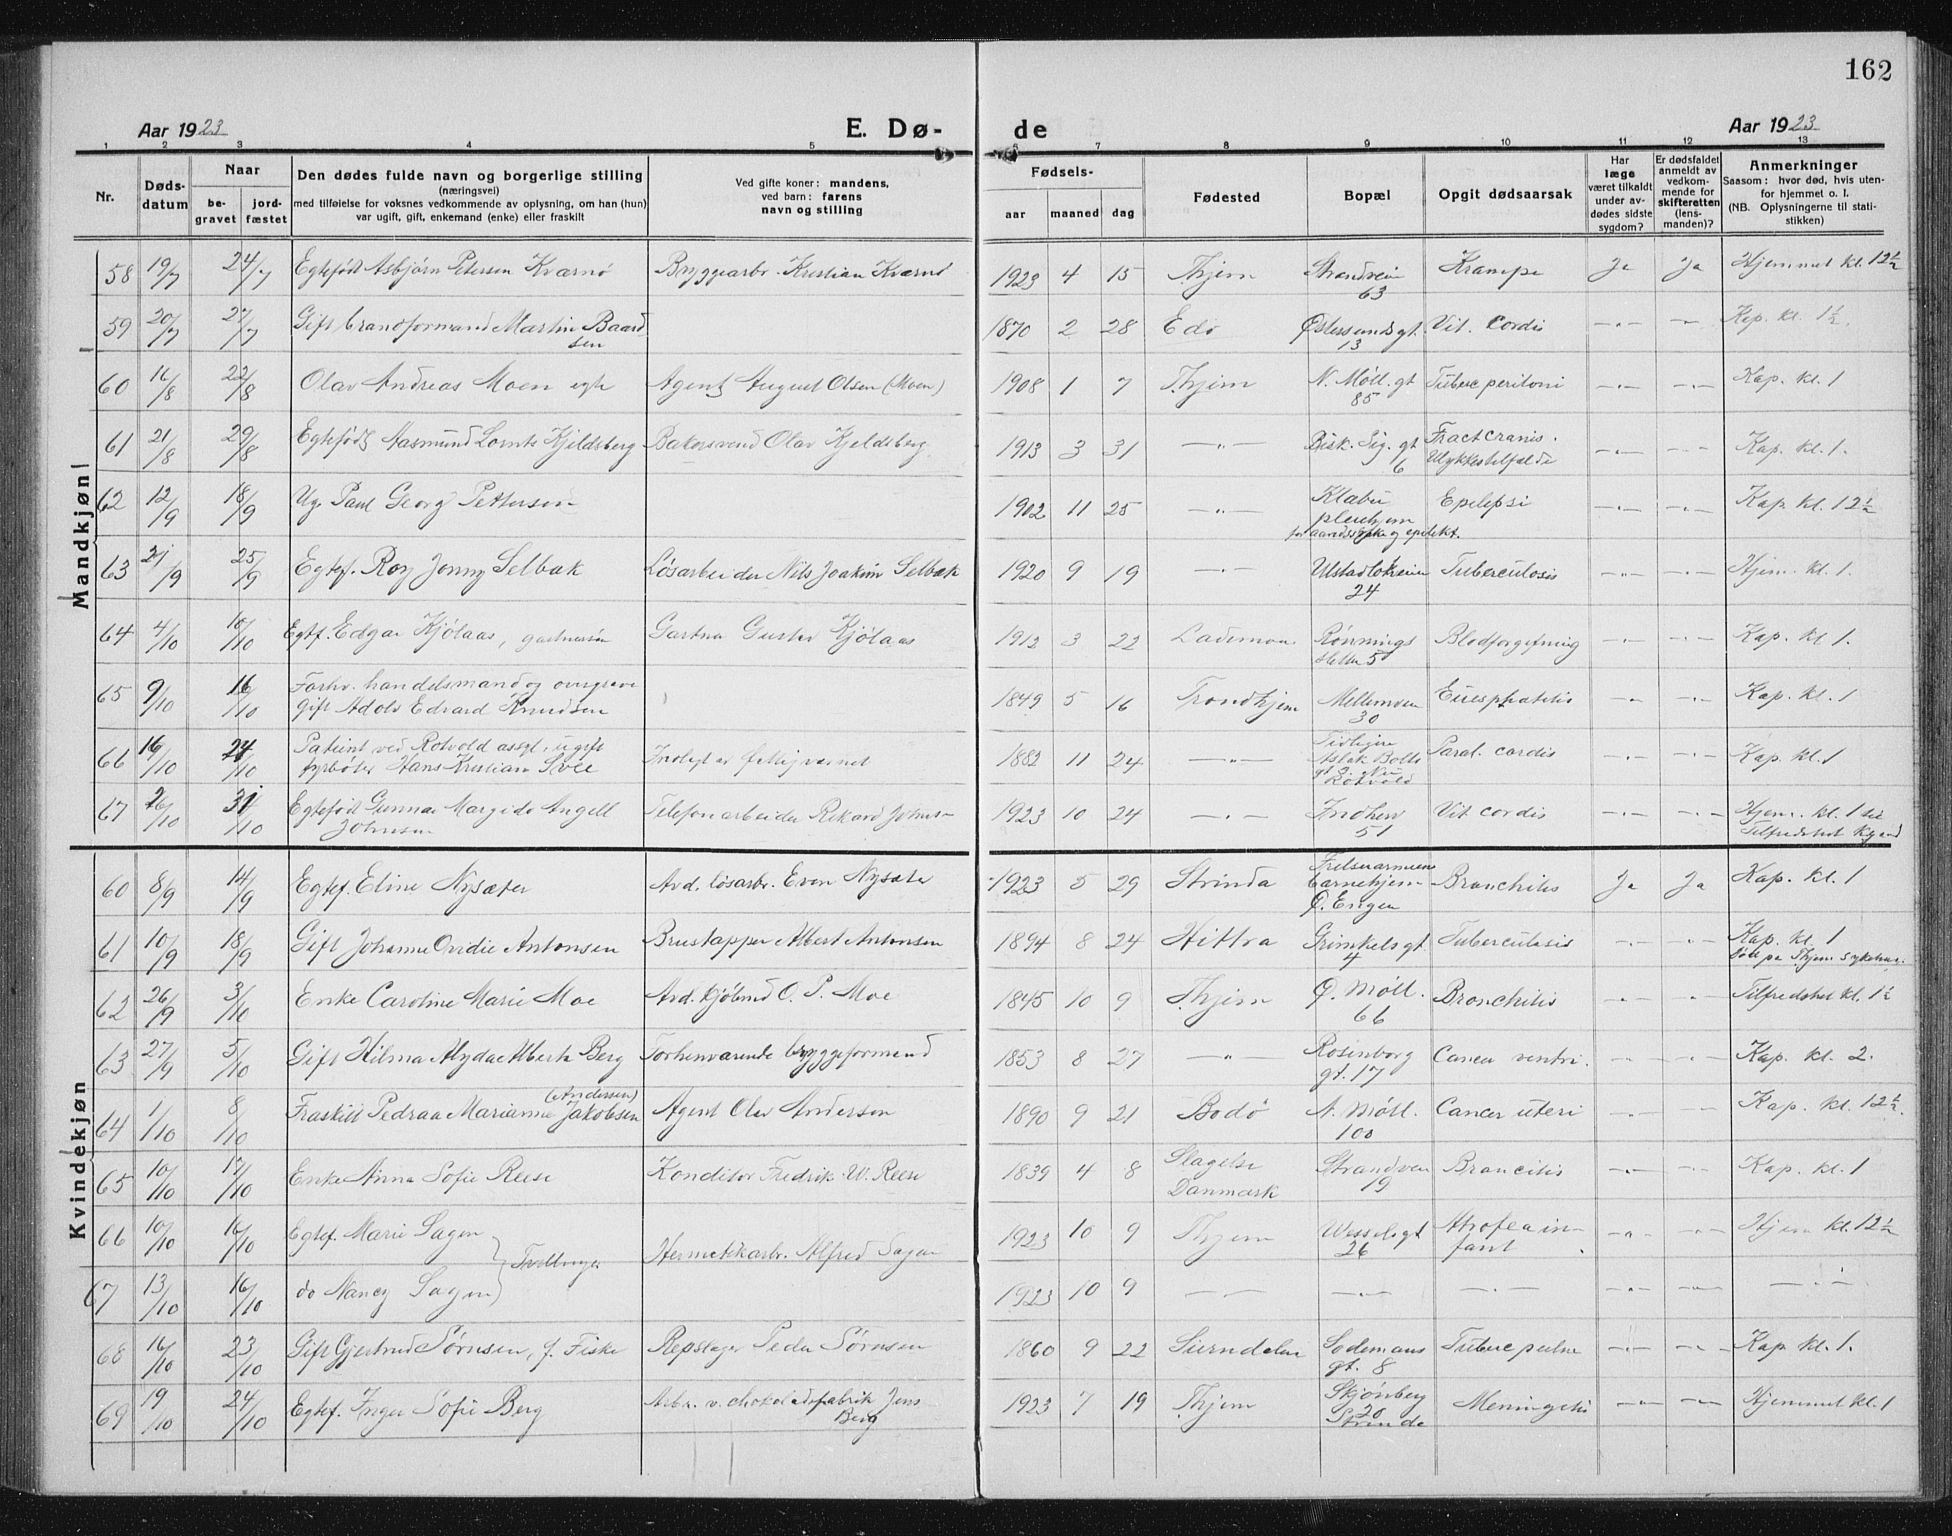 162
Aar 1923 E. Dø- de Aar 1923
1 2 3 4 5 6 7 8 9 10 11 12 13
Nr. Døds-datum Naar be-gravet jord-fæstet Den dødes fulde navn og borgerlige stilling (næringsvei) med tilføielse for voksnes vedkommende av oplysning, om han (hun) var ugift, gift, enkemand (enke) eller fraskilt Ved gifte koner: mandens, ved barn: farens navn og stilling Fødsels- aar maaned dag Fødested Bopæl Opgit dødsaarsak Har læge været tilkaldt under av-dødes sidste sygdom? Er dødsfaldet anmeldt av vedkom-mende for skifteretten (lens-manden)? Anmerkninger Saasom: hvor død, hvis uten-for hjemmet o. l. (NB. Oplysningerne til stati-stikken)
Mandkjøn
58 19/7 24/7 Egtefødt Asbjørn Petersen Kværnø Bryggearb. Kristian Kværnø 1923 4 15 Thjem Strandveien 63 Krampe Ja Ja Hjemmet kl. 12½
59 20/7 27/7 Gift brandformand Martin Baardsen 1870 2 28 Edø Østersundsgt. 13 Vit. Cordis -"- -"- Kap. kl. 1½.
60 16/8 22/8 Olav Andreas Moen egte Agent August Olsen (Moen) 1908 1 7 Thjem N. Møll. gt 85 Tuberc peritoni -"- -"- Kap. kl. 1
61 21/8 29/8 Egtefødt Aasmund Lornts Kjeldsberg Bakersvend Olav Kjeldsberg. 1913 3 31 -"- Bisk. Sig. gt 6 Fract cranis. Ulykkestilfælde -"- -"- Kap. kl. 1.
62 12/9 18/9 Ug. Paul Georg Pettersen 1902 11 25 -"- Klæbu pleiehjem for aandssyke og epilekt. Epelepsi -"- -"- Kap. kl. 12½
63 21/9 25/9 Egtef. Roy Jonny Selbæk Løsarbeider Nils Joakim Selbæk 1920 9 19 -"- Ulstadløkveien 24 Tuberculosis -"- -"- Hjem. kl. 1.
64 4/10 10/10 Egtf. Edgar Kjølaas, gartnersøn Gartner Gustav Kjølaas 1912 3 22 Lademoen Rønnings sletten 5 Blodforgiftning -"- -"- Kap. kl 1.
65 9/10 16/10 Forhv. handelsmand og overgraver gift Adolv Edvard Knudsen 1849 5 16 Trondhjem Mellemveien 30 -"- -"- Kap. kl. 1
66 16/10 24/10 Patient ved Rotvold asyl. ugift fyrbøter Hans Kristian Svee Indlagt av fattigvæsenet 1882 11 24 -"- Tidligere Aslak Bolts gt 3. Nu Rotvold Paral. cordis -"- -"- Kap. kl. 1
67 26/10 31/10 Egtefødt Gunnar Margido Angell Johnsen Telefonarbeider Rikard Johnsen 1923 10 24 -"- Indhere 51 Vit cordis -"- -"- Hjem. kl. 1 til Tilfredshet Kgaard
Kvindekjøn
60 8/9 14/9 Egtef. Eline Nysæter Avd. løsarb. Even Nysæter 1923 5 29 Strinda Frelsesarmeens Barnehjem Ø. Engen Bronchitis Ja Ja Kap. kl. 1
61 10/9 18/9 Gift Johanne Ovidie Antonsen Brustapper Albert Antonsen 1894 8 24 Hittra Grimkelsgt. 4 Tuberculosis -"- -"- Kap. kl. 1 Død paa Thjems sykehus.
62 26/9 3/10 Enke Caroline Marie Moe Avd. kjøbmd O. P. Moe 1845 10 9 Thjem Ø. Møll. 66 Bronchitis -"- -"- Tilfredshet kl. 1½
63 27/9 5/10 Gift Hilma Alyda Alberta Berg Forhenværende byggeformand 1853 8 27 -"- Rosenborg gt. 17 Cancer ventri. -"- -"- Kap. kl. 2.
64 1/10 8/10 Fraskilt Pedraa Marianne (Andersen) Jakobsen Agent Olav Andersen 1890 9 21 Bodø N. Møll. 100 Cancer uteri -"- -"- Kap. kl. 12½.
65 10/10 17/10 Enke Anna Sofie Reese Konditor Fredrik W. Reese 1839 4 8 Slagelse Danmark Strandveien 19 Broncitis -"- -"- Kap. kl. 1
66 10/10 16/10 Egtef. Marie Sagen } Tvillinger Hermetikarb. Alfred Sagen 1923 10 9 Thjem Wesselsgt 26 Atrofea infant. -"- -"- Hjem kl. 12½
67 13/10 16/10 do Nancy Sagen 1923 10 9 -"- -"- -"- -"- -"- -"-
68 16/10 23/10 Gift Gjertrud Sørnsen, f. Fiske Repslager Peder Sørnsen 1860 9 22 Surndalen Sodemans gt. 8 Tuberc pulm -"- -"- Kap kl. 1.
69 19/10 24/10 Egtef. Inger Sofie Berg Arb. v. chokoladefabrik Jens Berg 1923 7 19 Thjem Skjønberg 20 Strinda Meningitis -"- -"- Hjemmet kl. 1